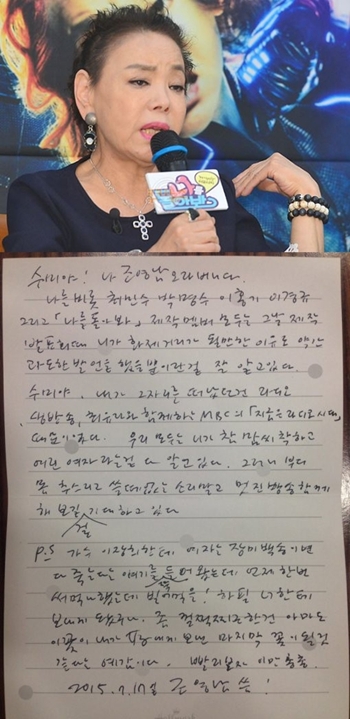 나를
돌아봐
수미야! 나 조영남 오라버니다.
나를 비롯 최민수 박명수 이홍기 이경규
그리고 「나를 돌아봐」 제작 멤버 모두는 그날 제작
발표회때 니가 화제거리가 될만한 이유로 약간
과도한 발언을 했을뿐이란걸 잘 알고있다.
수미야. 내가 그자리를 떠났던건 라디오
생방송, 최유라와 함께하는 MBC의 「지금은 라디오 시대」
때문이었다. 우리 모두는 니가 참 맘씨 착하고
여린 여자라는걸 다 알고있다. 그러니 부디
몸 추스리고 쓸데없는 소리말고 멋진 방송 함께
해 보길 기대하고 있다
걸
P.S 가수 이장희한테 여자는 장미 백송이면
다 죽는다는 얘기를 들어왔는데 언제 한번
써먹나 했는데 빌어먹을! 하필 너한테
보내게 됐구나. 좀 껄쩍찌근한건 아마도
이꽃이 내가 여자에게 보낸 마지막 꽃이 될것
같다는 예감이다. 빨리보자 이만 총총.
2015. 7. 17일 조영남 씀!